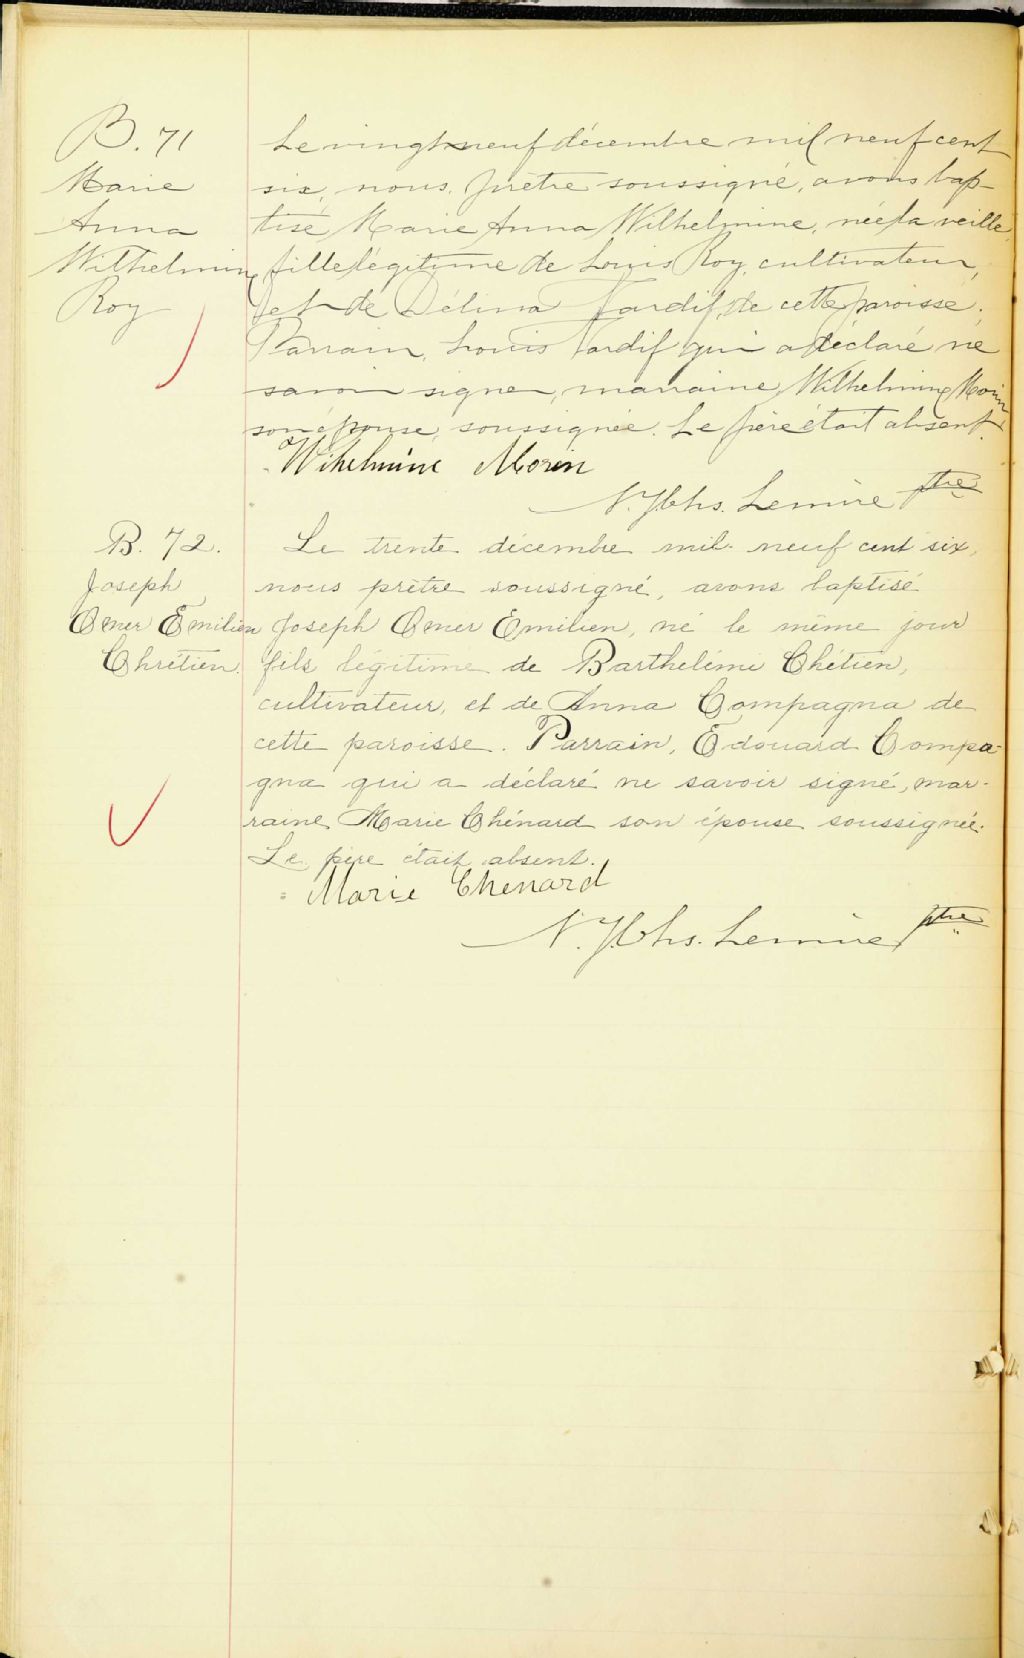 B. 71
Marie
Anna
Wilhelmine
Roy
Le vingt neuf décembre mil neuf cent
six, nous, prêtre soussigné, avons bap-
tisé Marie Anna Wilhelmine, née la veille,
fille légitime de Louis Roy, cultivateur,
et de Délina Tardif, de cette paroisse.
Parrain, Louis Tardif qui a déclaré ne
savoir signer, marraine, Wilhelmine Morin
son épouse, soussignée. Le père était absent.
Wihelmine Morin
Lemire ptre
B. 72.
Joseph
Omer Emilien
Chrétien.
Le trente décembre mil neuf cent six,
nous prêtre soussigné, avons baptisé
Joseph Omer Emilien, né le même jour
fils légitime de Barthelémi Chétien,
cultivateur, et de Anna Compagna de
cette paroisse. Parrain, Edouard Compa-
gna qui a déclaré ne savoir signé, mar-
raine Marie Chénard son épouse soussignée.
Le père était absent.
Marie Chenard
Lemire ptre